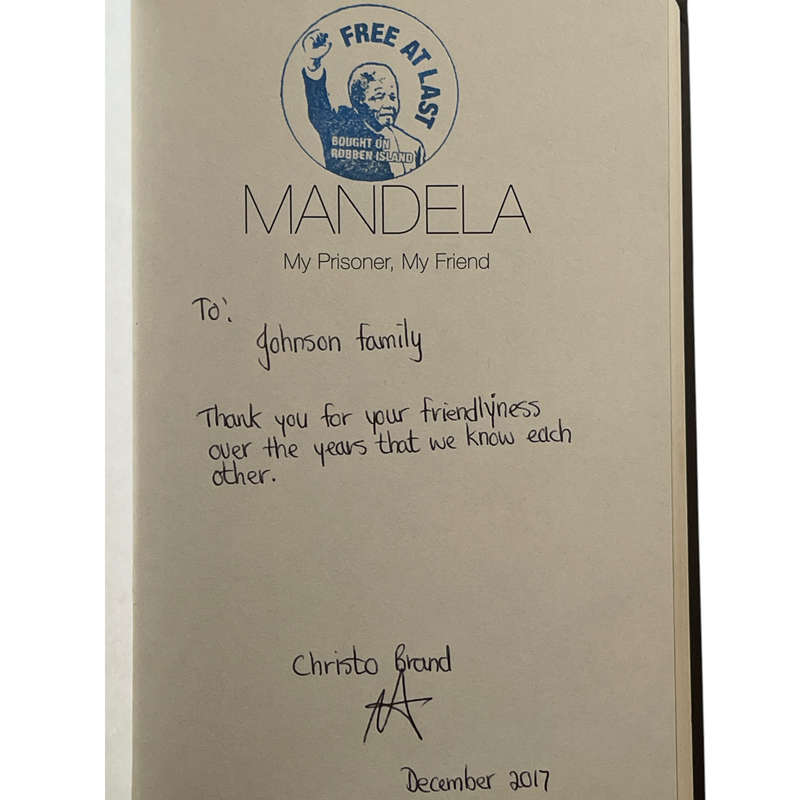 FREE AT LAST
BOUGHT ON
ROBBEN ISLAND
MANDELA
My Prisoner, My Friend
To:
Johnson family
Thank you for your friendlyness
over the years that we know each
other.
Christo Brand
December 2017